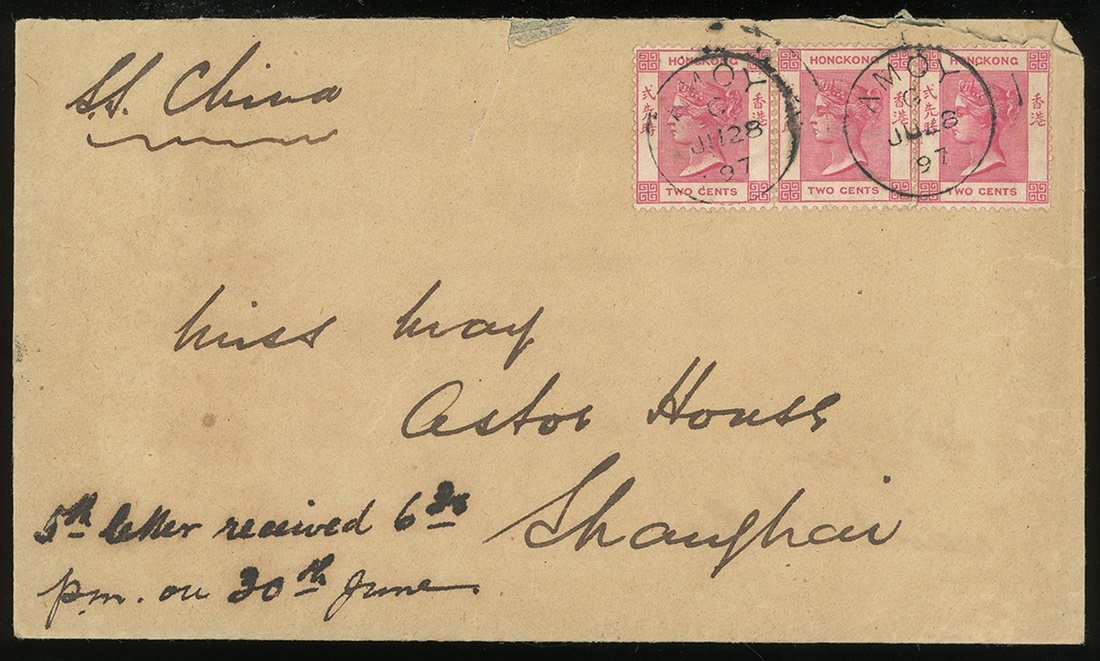 S.S. China
HONGKONG HONGKONG HONGKONG
弍先時 香港 弍先時 香港 弍先時 香港
TWO CENTS TWO CENTS TWO CENTS
AMOY
C
JU 28
97
AMOY
C
JU 28
97
Miss May
Astor House
Shanghai
5th letter received 6 30
p.m. on 30th June.